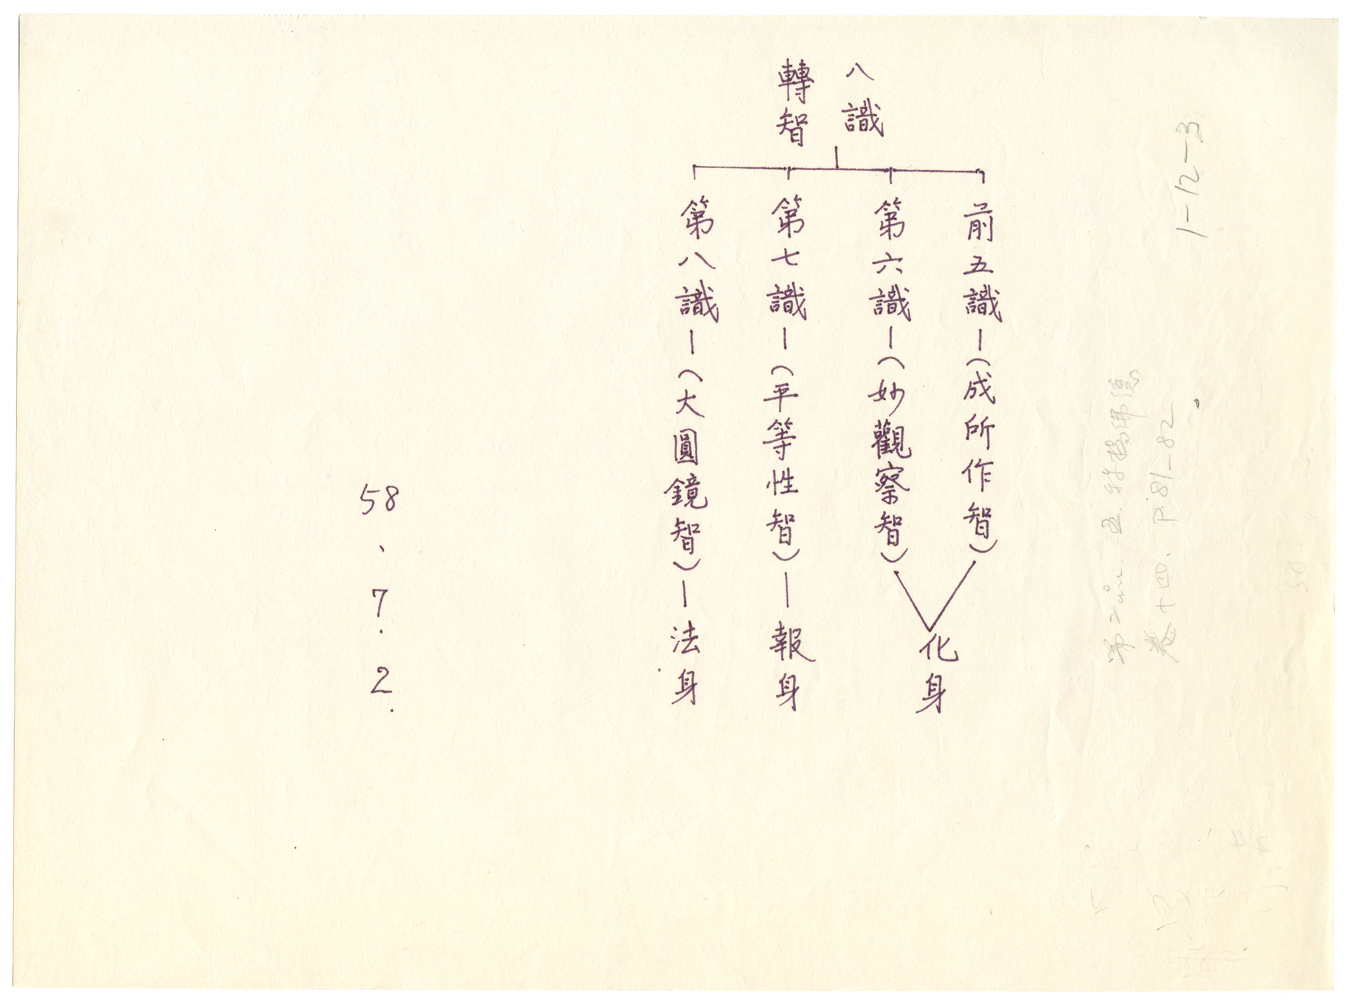 八識
轉智
前五識－（成所作智）
第六識－（妙觀察智）
化身
第七識－（平等性智）－報身
第八識－（大圓鏡智）－法身
58、7.2.
1-12-3
卷十四、P.81-82